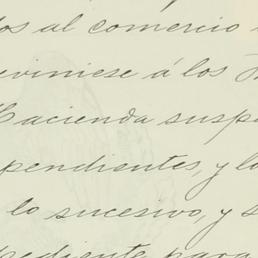 os al comercio
viniese á los
Hacienda susp
pendientes, y lo
lo sucesivo, y s
pediente para